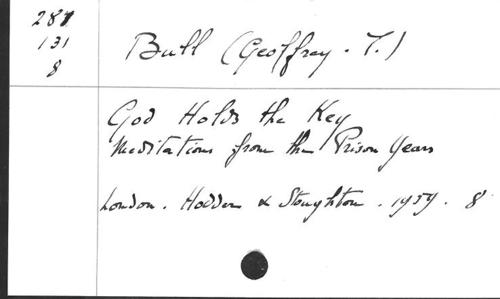 287
131
8
Bull (Geoffrey. T.)
God Holds the Key
Meditations from the Prison Years
London. Hodder & Stoughton. 1959. 8